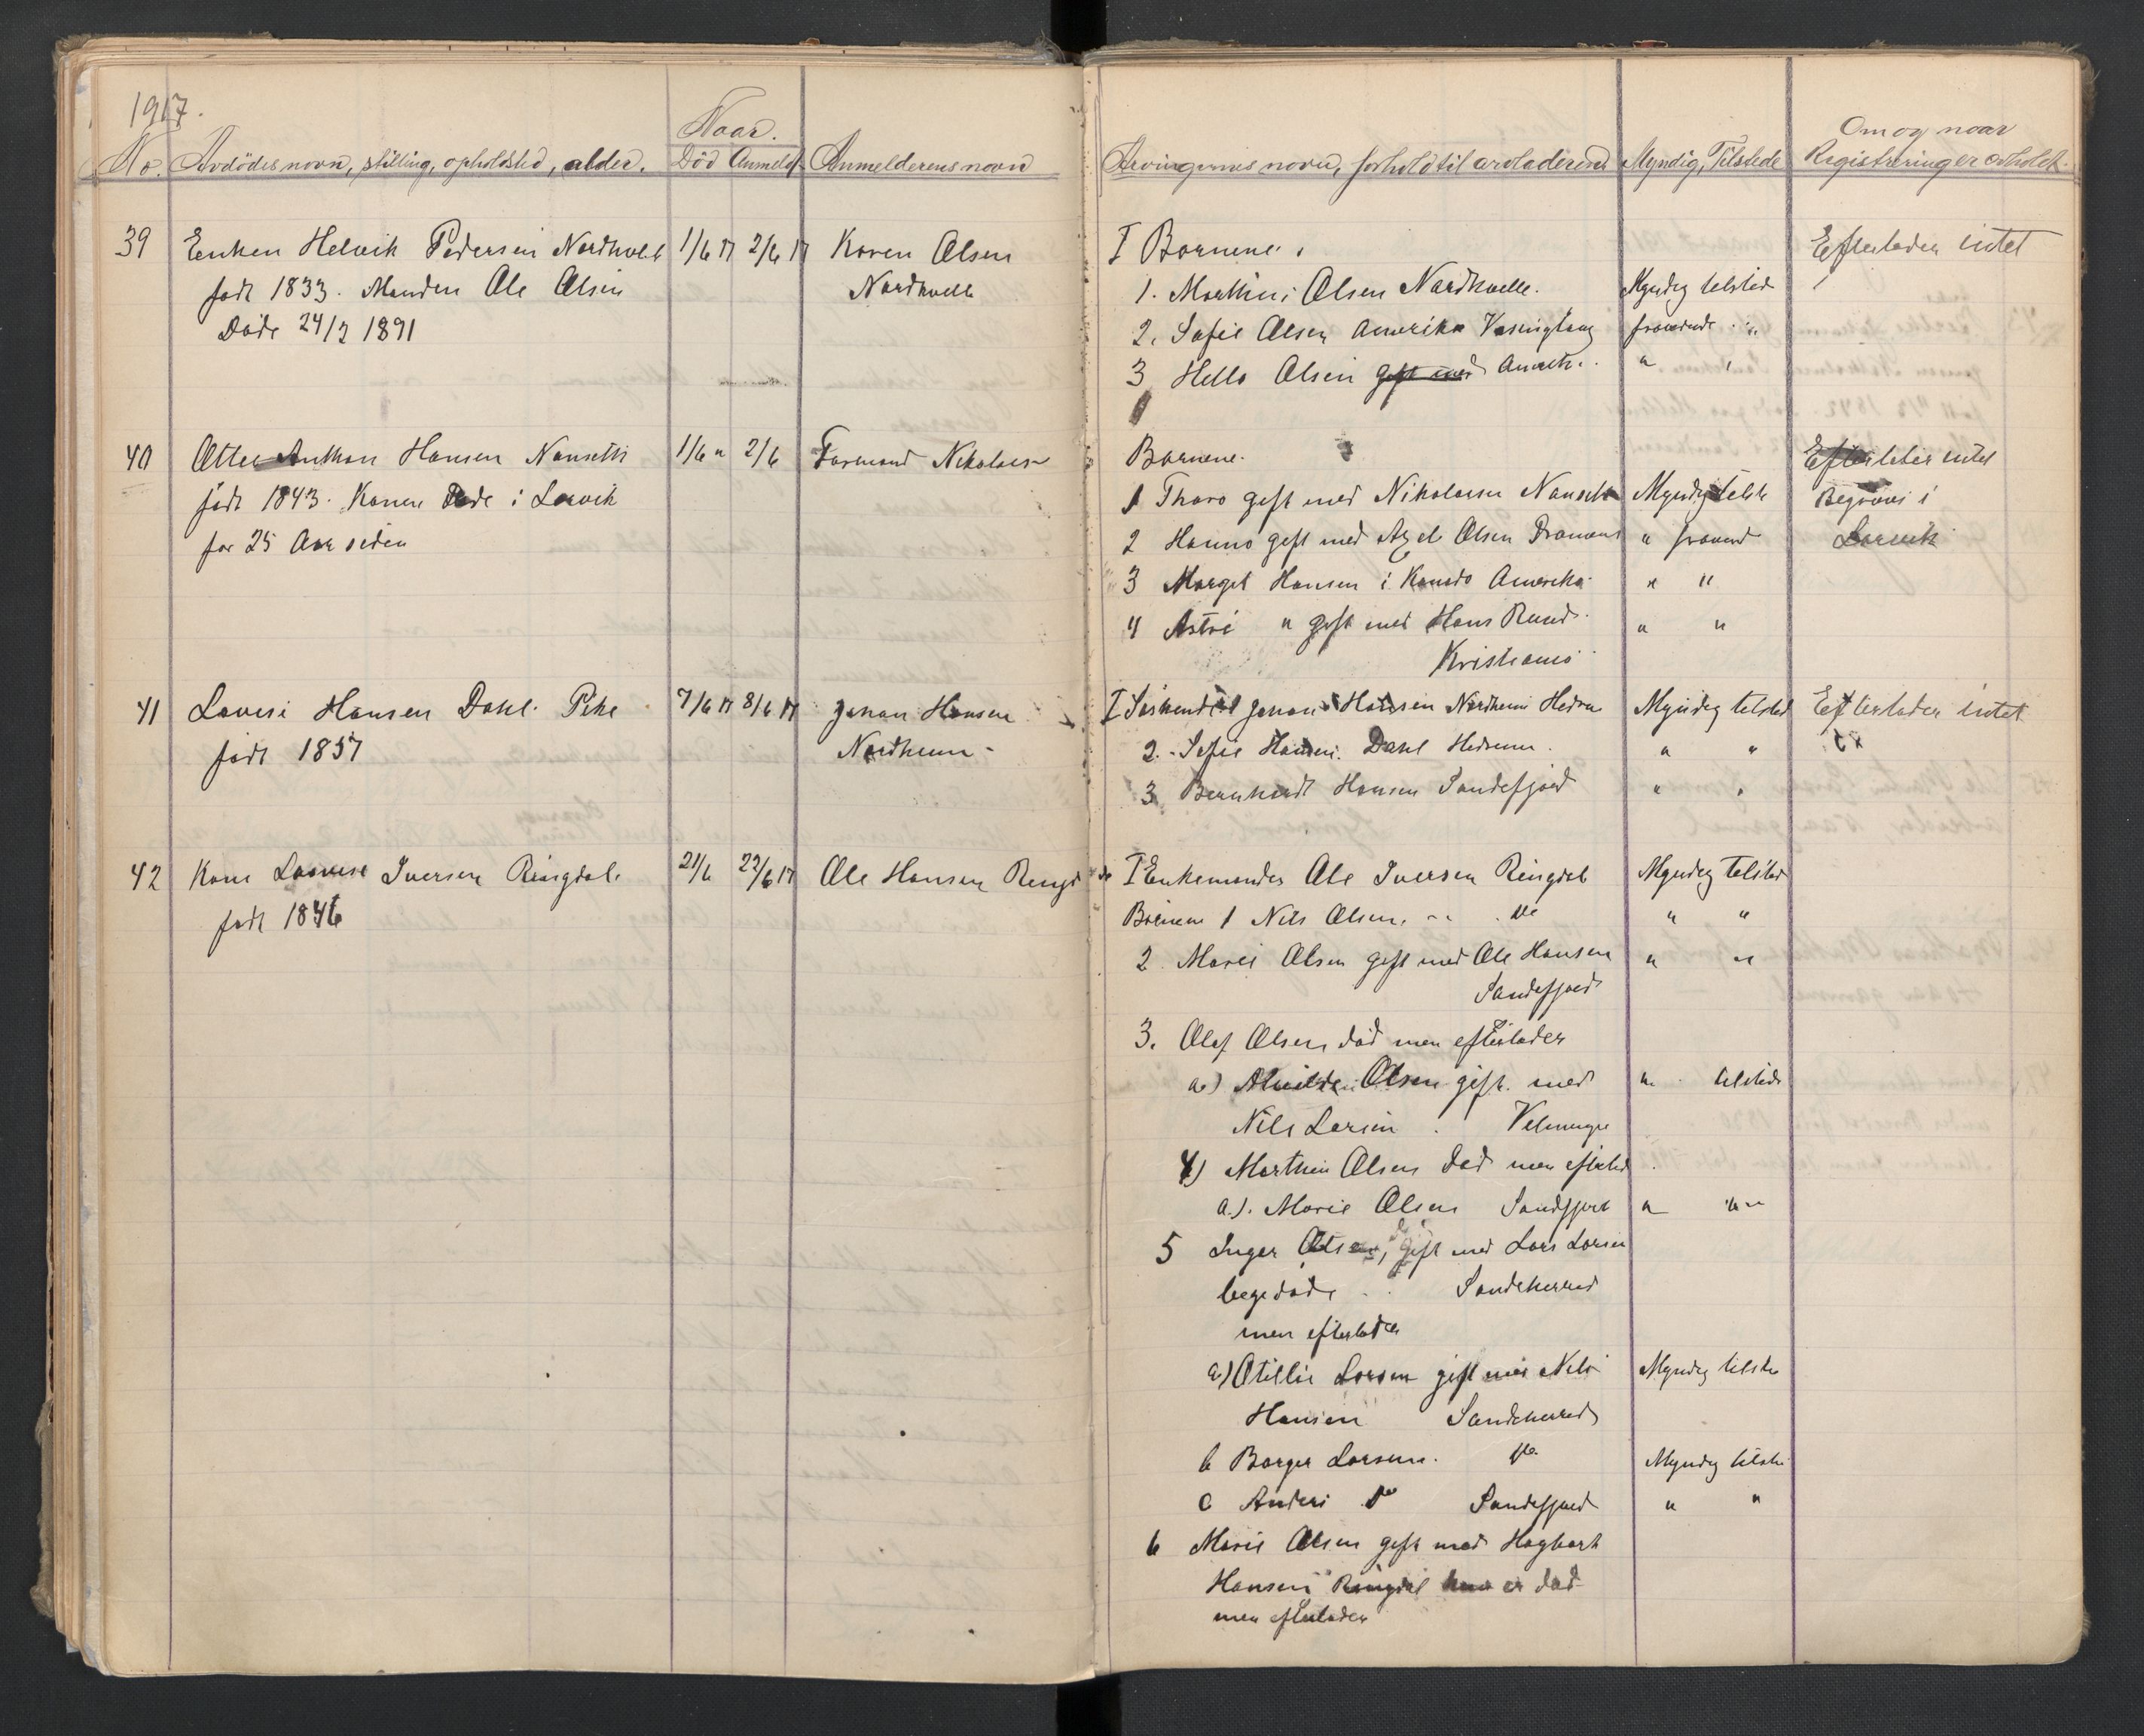 1917.
Naar. Om og naar
No. Avdödes navn, stilling, opholdsted, alder. Död Anmeldt Anmelderens navn Arvingernes navn, forhold til arveladeren Myndig, Tilstede Registrering er avholdt
39 Enken Helvik Pedersen Nordkvelle 1/6 17 2/6 17 Karen Olsen I Børnene: Efterlader intet
født 1833. Manden Ole Olsen Nordkvelle 1. Marthin Olsen Nordkvelle. Myndig tilsted
Døde 24/2 1891 2. Sofie Olsen Amerika fraværende "
3 Olsen gift med Amerik. "
40 Otter Anthon Hansen Nansett 1/6 " 2/6 Formand Nikolaisen Børnene. Efterlader intet
født 1843. Konen Døde i Larvik 1 Thara gift med Nikolaisen Nansett Myndig tilste Begraves i
for 25 Aar siden 2 Hanna gift med Axel Olsen Dramens " fraværend Larvik
3 Margit Hansen i Amerika " "
4 Astri " gift med Hans Rund " "
Kristiania
41 Lovise Hansen Dahl. Pike 7/6 17 8/6 17 Johan Hansen I Søskende 1 Johan Hansen Nordheim Hedrum Myndig tilsted Efterlader intet
født 1857 Nordheim 2. Sofie Hansen. Dahl Hedrum. " "
3 Bernhardt Hansen Sandefjord " "
42 Kone Lovise Iversen Ringdal. 21/6 22/6 17 Ole Hansen Ringdal I Enkemanden Ole Iversen Ringdal Myndig tilsted
født 1846 Børnene 1 Nils Olsen. " "
2 Marie Olsen gift med Ole Hansen " "
Sandefjord
3. Olaf Olsen død men efterlader
a) Olsen gift. med " tilstede
Nils Larsen
4) Marthin Olsen død men efterlad
a). Marie Olsen Sandefjord " "
5 Inger Olsen, gift med Lars Larsen
begedøde Sandeherred
men efterlader
a) Otillie Larsen gift med Nils Myndig tilste
Hansen Sandeherred
b Borger Larsen. Myndig tilste
c Anders Do Sandefjord " "
6 Marie Olsen gift med Hagbart
Hansen Ringdal er død
men efterlader